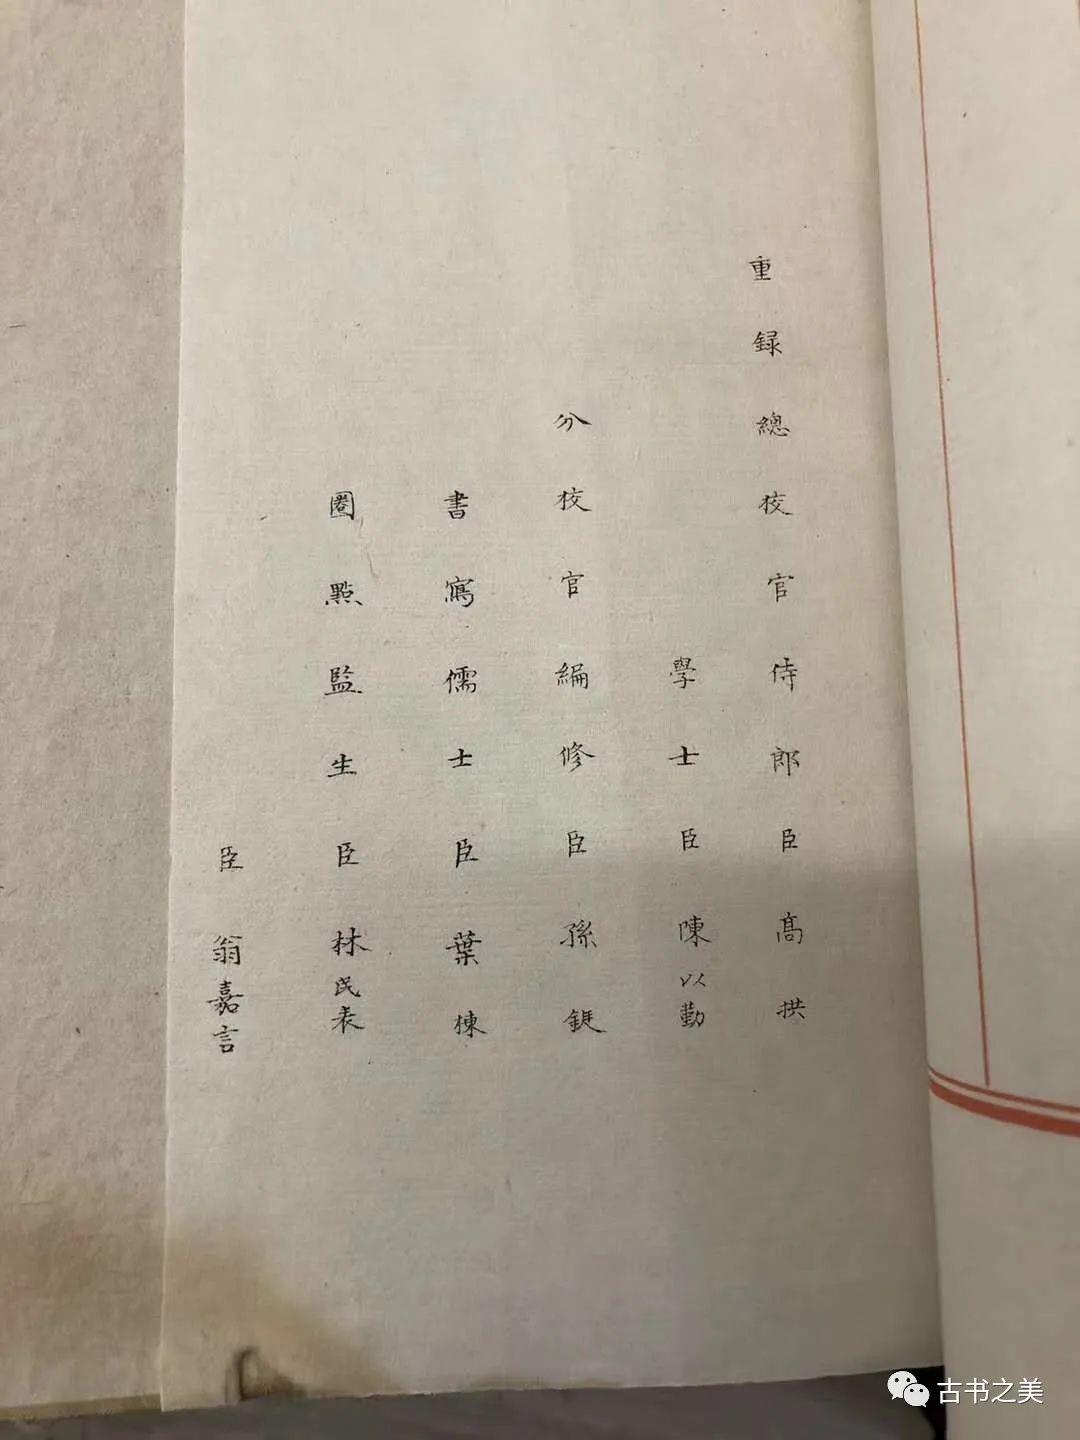 重録總挍官侍郎臣髙拱
學士臣陳以勤
分挍官編修臣孫鋌
書寫儒士臣葉棟
圈㸃監生臣林民表
臣翁嘉言
古书之美